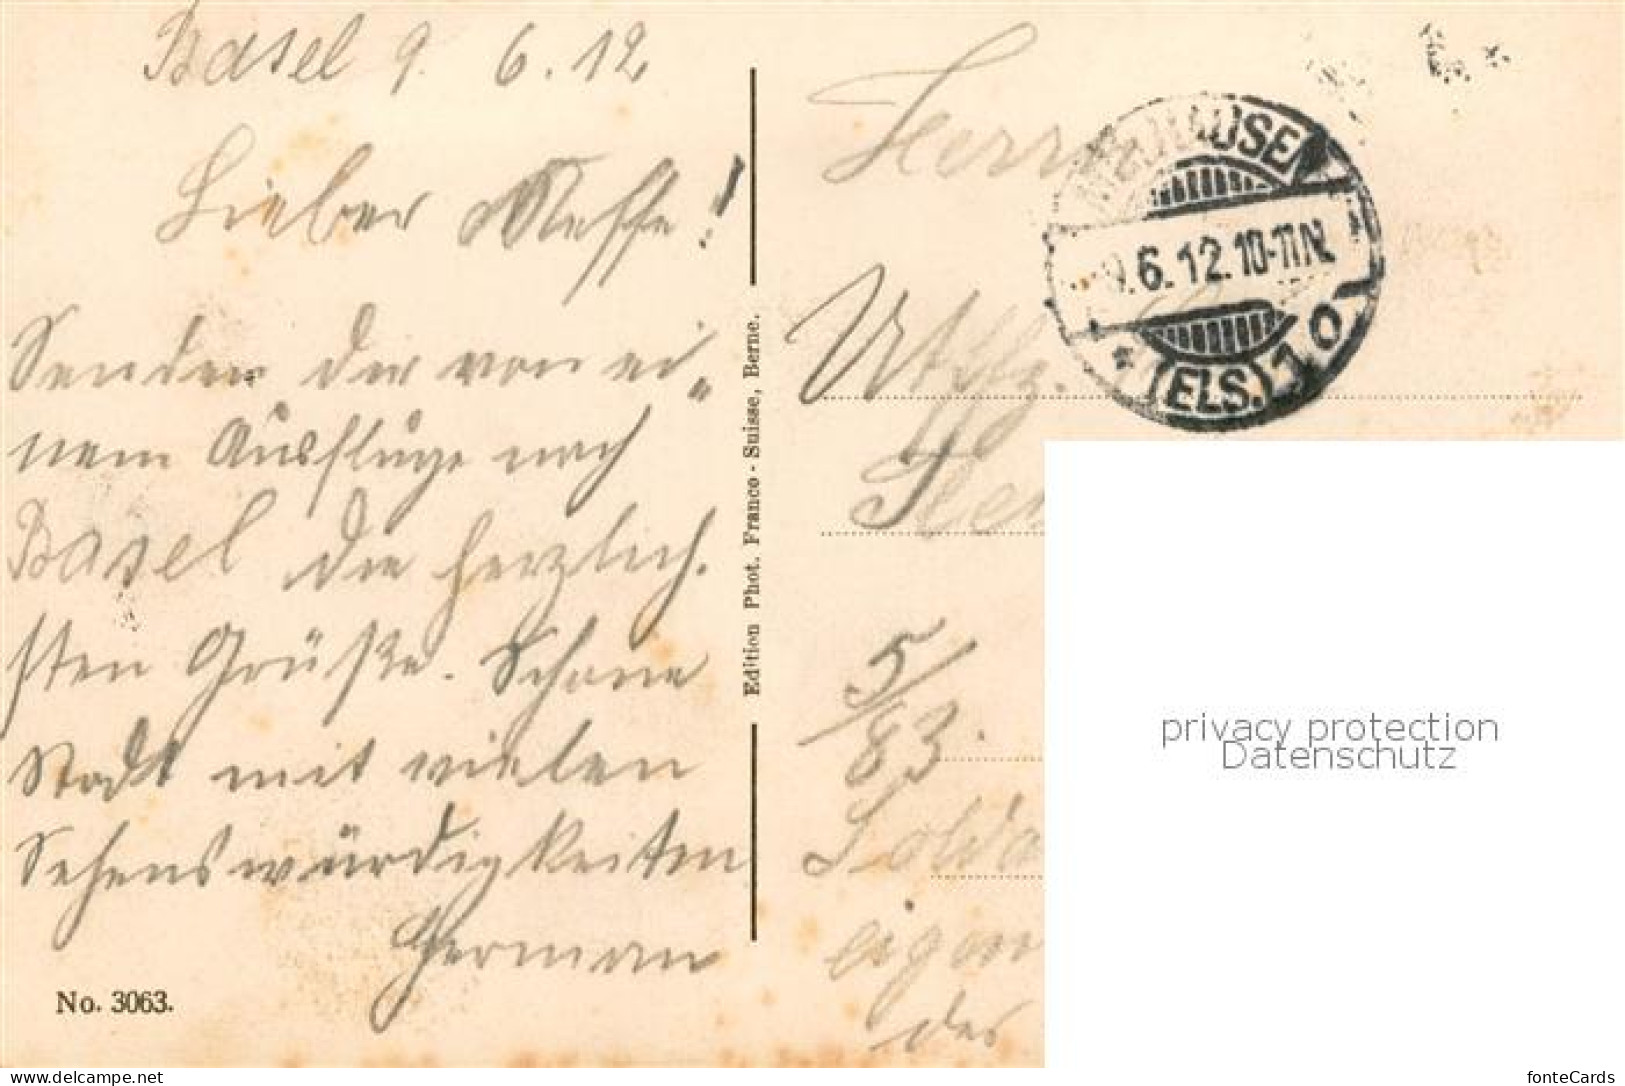 Basel 9. 6. 12
Lieber Neffe!
Senden dir von ei„
nem Ausfluge nach
Basel die herzlich.
sten Grüße. Schöne
Stadt mit vielen
Sehenswürdigkeiten
Herman
No. 3063.
Edition Phot. Franco-Suisse, Berne.
Herrn
Utffz.
5/83.
Solda
eigen
des
MÜLHAUSEN
9.6.12.10-11N.
* (ELS.) 10
privacy protection
Datenschutz
the-best-of-ever
fonteCards